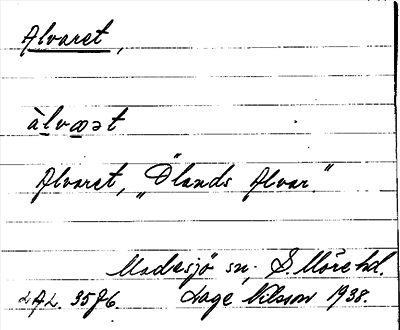 Alvaret,
àlvaət
Alvaret, „Ölands Alvar."
Madesjö sn, S. Möre hd.
LAL. 3576. Lage Nilsson 1938.